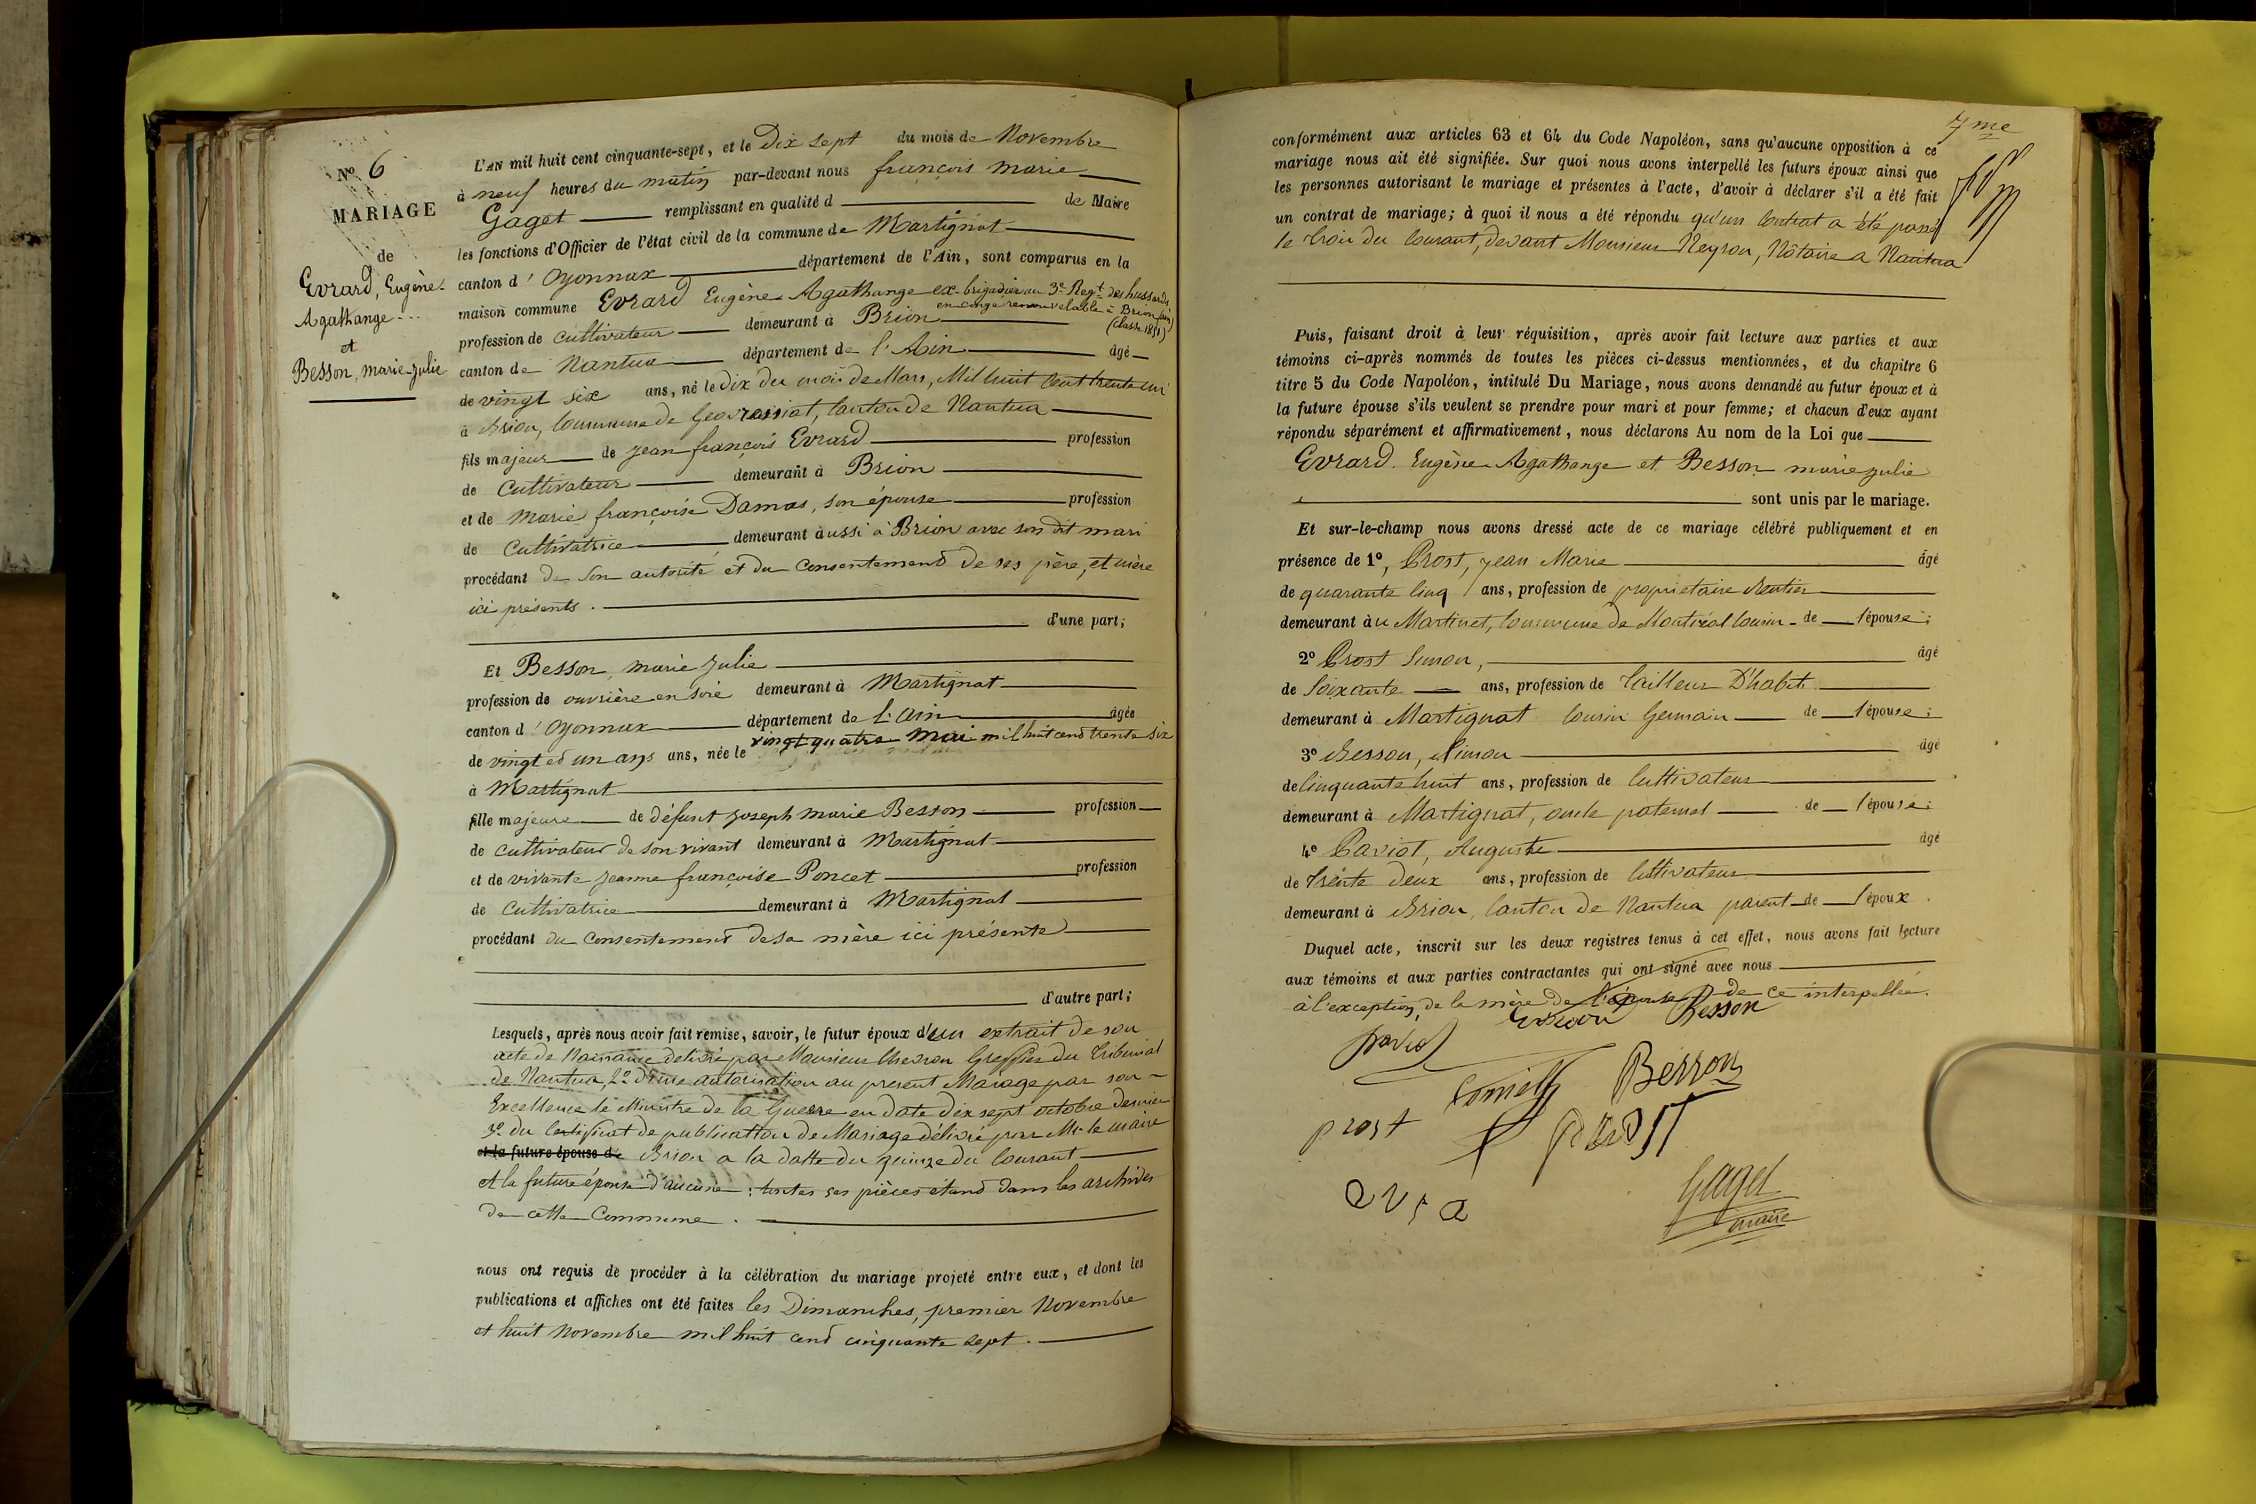 N° 6
MARIAGE
de
Evrard, Eugène-
Agathange...
et
Besson, marie-Julie
L'AN mil huit cent cinquante-sept, et le Dix sept du mois de Novembre
à neuf heures du matin par-devant nous françois marie
Gaget remplissant en qualité d de Maire
les fonctions d'Officier de l'état civil de la commune de Martignat
canton d'Oyonnax département de l'Ain, sont comparus en la
maison commune Evrard Eugène Agathange ex-brigadier au 3e Regt des hussards
en congé renouvelable à Brion (ain)
(classe 1851)
profession de cultivateur demeurant à Brion
canton de Nantua département de l'Ain âgé
de vingt six ans, né le dix du mois de Mars, Mil huit Cent trente un
à Brion, Commune de Geovressiat, Canton de Nantua
fils majeur de Jean françois Evrard profession
de Cultivateur demeurant à Brion
et de Marie françoise Damas, son épouse profession
de Cultivatrice demeurant aussi à Brion avec son dit mari
procédant de son autorité et du Consentement de ses père, et mère
ici présents.
d'une part;
Et Besson, marie Julie
profession de ouvrière en soie demeurant à Martignat
canton d'Oyonnax département de l'Ain âgée
de vingt et un ans ans, née le vingt quatre Mai mil huit cent trente six
à Martignat
fille majeure de défunt Joseph marie Besson profession
de cultivateur de son vivant demeurant à Martignat
et de vivante Jeanne françoise Poncet profession
de Cultivatrice demeurant à Martignat
procédant du Consentement de sa mère ici présente
d'autre part;
Lesquels, après nous avoir fait remise, savoir, le futur époux d'un extrait de son
acte de Naissance délivré par Monsieur Greffier du Tribunal
de Nantua, 2° d'une autorisation au present Mariage par son
Excellence le Ministre de la Guerre en date dix sept octobre dernier
3° du Certificat de publication de Mariage délivré par Mr le maire
et la future épouse de Brion a la datte du quinze du Courant
et la future épouse d'aucune: toutes ses pièces étand dans les archives
de cette Commune.
nous ont requis de procéder à la célébration du mariage projeté entre eux, et dont les
publications et affiches ont été faites les Dimanches, premier Novembre
et huit Novembre mil huit cend cinquante sept.
7me
conformément aux articles 63 et 64 du Code Napoléon, sans qu'aucune opposition à ce
mariage nous ait été signifiée. Sur quoi nous avons interpellé les futurs époux ainsi que
les personnes autorisant le mariage et présentes à l'acte, d'avoir à déclarer s'il a été fait
un contrat de mariage; à quoi il nous a été répondu qu'un Contrat a été passé
le trois du Courant, devant Monsieur Neyron, Nôtaire a Nantua
Puis, faisant droit à leur réquisition, après avoir fait lecture aux parties et aux
témoins ci-après nommés de toutes les pièces ci-dessus mentionnées, et du chapitre 6
titre 5 du Code Napoléon, intitulé Du Mariage, nous avons demandé au futur époux et à
la future épouse s'ils veulent se prendre pour mari et pour femme; et chacun d'eux ayant
répondu séparément et affirmativement, nous déclarons Au nom de la Loi que
Evrard. Eugène Agathange et Besson marie Julie
sont unis par le mariage.
Et sur-le-champ nous avons dressé acte de ce mariage célébré publiquement et en
présence de 1°, Prost, Jean Marie âgé
de quarante Cinq ans, profession de propriétaire Rentier
demeurant au Martinet, Commune de Montréal Cousin de l'épouse;
2° Prost Simon, âgé
de Soixante ans, profession de Tailleur D'habit
demeurant à Martignat Cousin Germain de l'épouse;
3° Besson, Simon âgé
de Cinquante huit ans, profession de Cultivateur
demeurant à Martignat, oncle paternel de l'épouse;
4° Paviot, Auguste âgé
de trente deux ans, profession de Cultivateur
demeurant à Brion, Canton de Nantua parent de l'époux.
Duquel acte, inscrit sur les deux registres tenus à cet effet, nous avons fait lecture
aux témoins et aux parties contractantes qui ont signé avec nous
à l'exception de la mère de l'épouse de ce interpellée.
Evrard Besson
Paviot
Besson
prost
prost
Gaget
maire